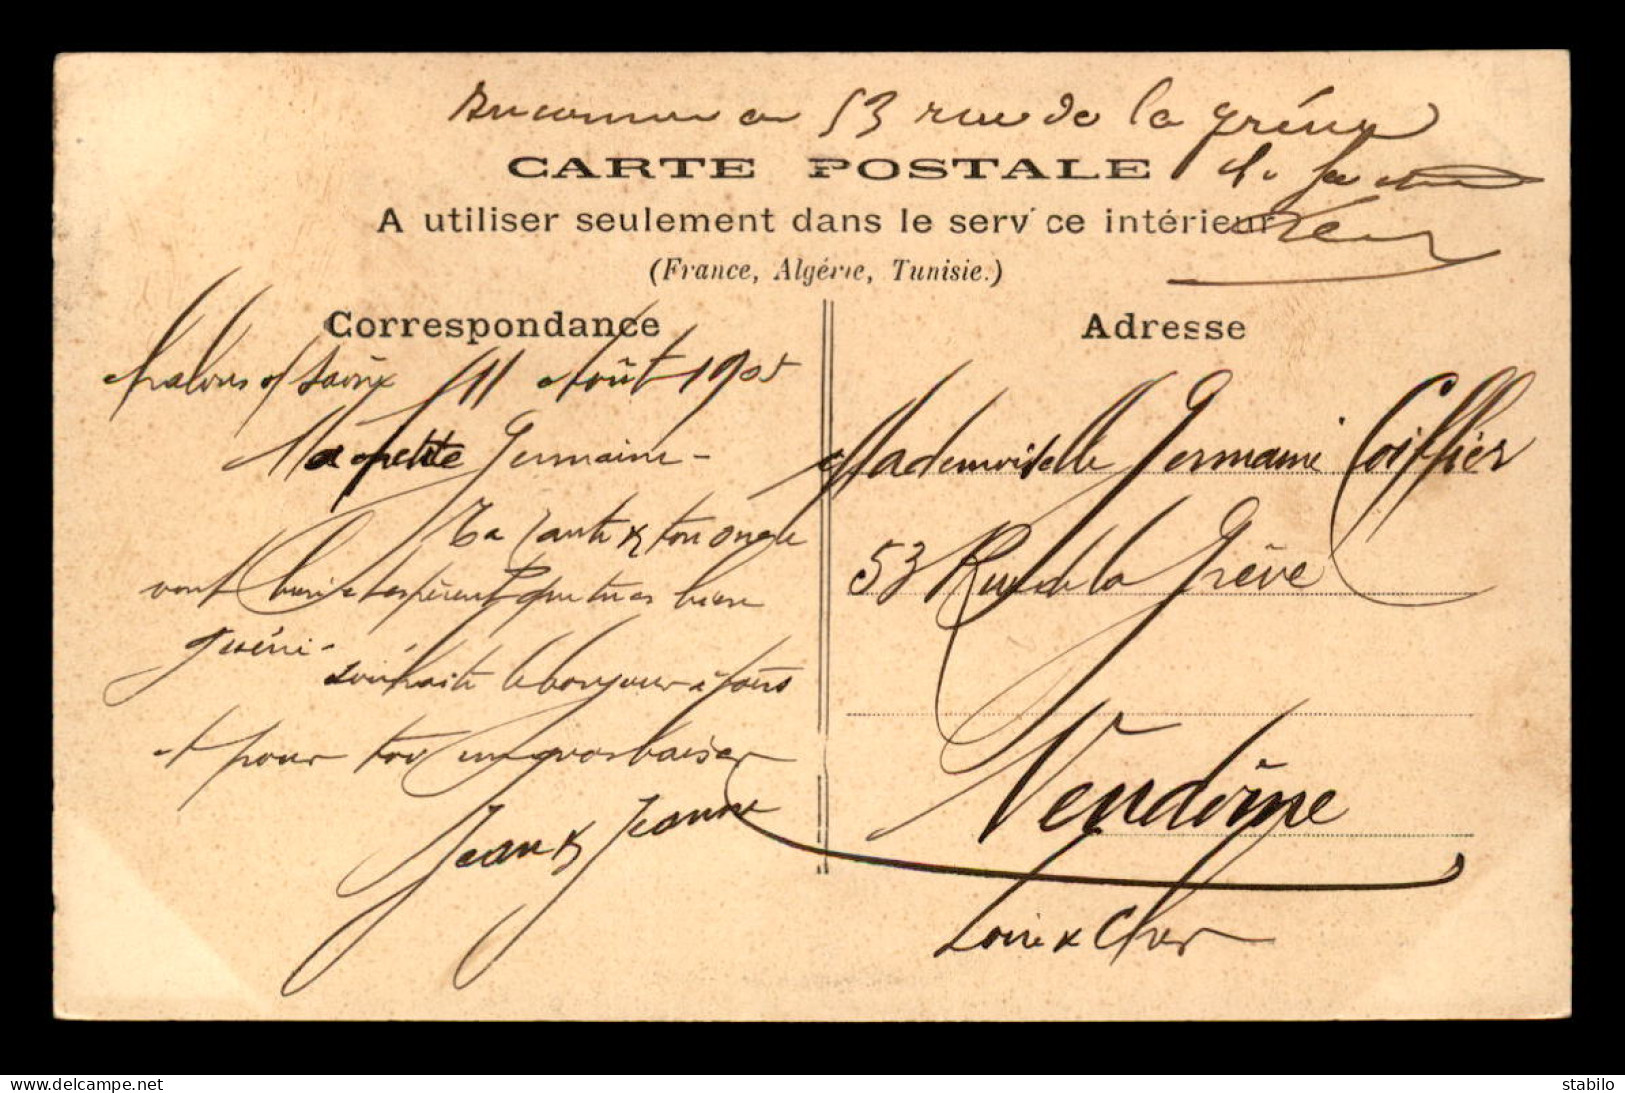 Inconnu au 53 rue de la grève
CARTE POSTALE
A utiliser seulement dans le service intérieur
(France, Algérie, Tunisie.)
Correspondance
Adresse
Chalons s/ Saône 11 Août 1905
Ma petite Germaine -
Ta Tante & ton oncle
vont bien et espèrent que tu es bien
guérie -
souhaite le bonjour à tous
et pour toi un gros baiser
Jean & Jeanne
Mademoiselle Germaine Coiffier
53 Rue de la Grève
Vendôme
Loir & Cher
www.delcampe.net
stabilo